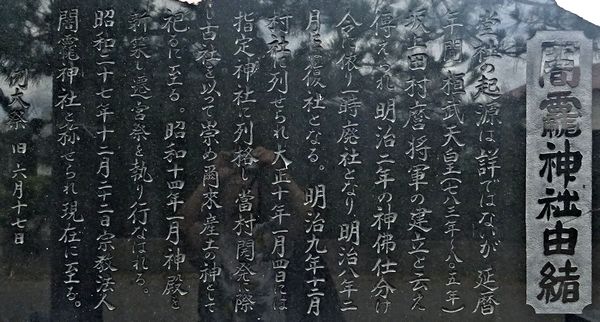 闇龗神社由緒
当社の起源は詳ではないが延暦
年間桓武天皇(七八三年~八〇五年)
坂上田村麿将軍の建立と云え
傳えられ明治二年の神佛仕分け
令に依り一時廃社となり明治八年二
月に復社となる。明治九年十二月
村社に列せられ大正十一年一月四日には
指定神社に列格し當村開会に際
し古社を以って崇め爾来産土の神として
祀るに至る。昭和十四年一月神殿を
新築し遷宮祭を執り行なはれる。
昭和二十七年十二月二十二日宗教法人
闇龗神社と称せられ現在に至る。
例大祭 旧 六月十七日